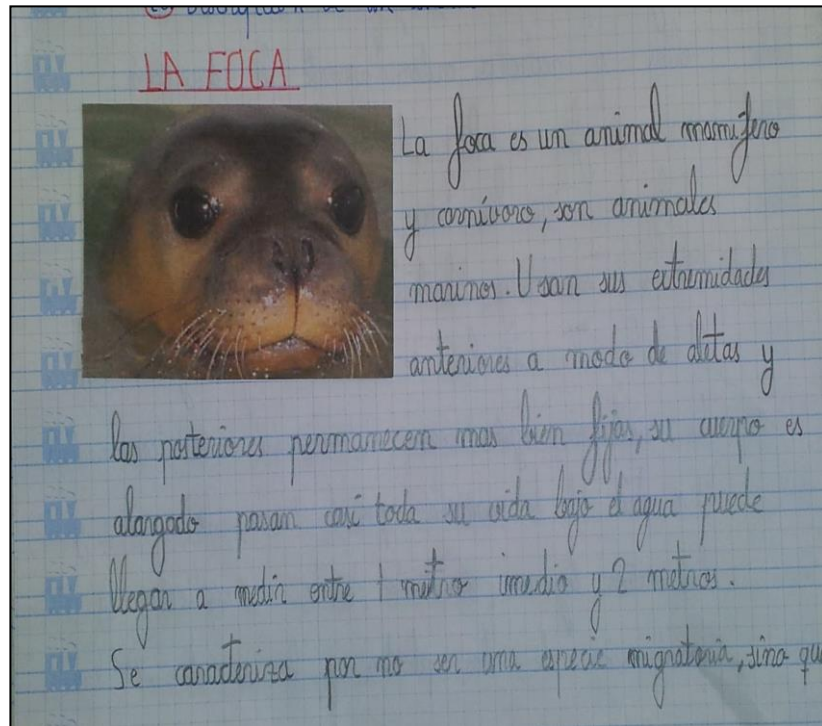 LA FOCA
La foca es un animal mamifero
y carnívoro, son animales
marinos. Usan sus extremidades
anteriores a modo de aletas y
las posteriores permanecen mas bien fijas, su cuerpo es
alargado pasan casi toda su vida bajo el agua puede
llegar a medir entre 1 metro imedio y 2 metros.
Se caracteriza por no ser una especie migratoria, sino qu